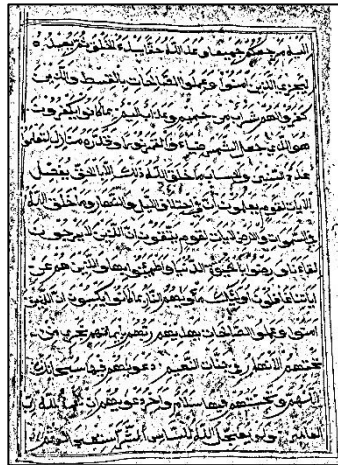 اليه مرجعكم جميعا وعد الله حقا انه يبدؤا الخلق ثم يعيده
ليجزي الذين امنوا وعملوا الصالحات بالقسط والذين
كفروا لهم شراب من حميم وعذاب اليم بما كانوا يكفرون
هو الذي جعل الشمس ضياء والقمر نورا وقدره منازل لتعلموا
عدد السنين والحساب ما خلق الله ذلك الا بالحق يفصل
الايات لقوم يعلمون ان في اختلاف الليل والنهار وما خلق الله
في السموات والارض لايات لقوم يتقون ان الذين لا يرجون
لقاءنا ورضوا بالحيوة الدنيا واطمانوا بها والذين هم عن
اياتنا غافلون اولئك ماويهم النار بما كانوا يكسبون ان الذين
امنوا وعملوا الصالحات يهديهم ربهم بايمانهم تجري من
تحتهم الانهار في جنات النعيم دعويهم فيها سبحانك
اللهم وتحيتهم فيها سلام واخر دعويهم ان الحمد لله رب
العالمين ولو يعجل الله للناس الشر استعجالهم